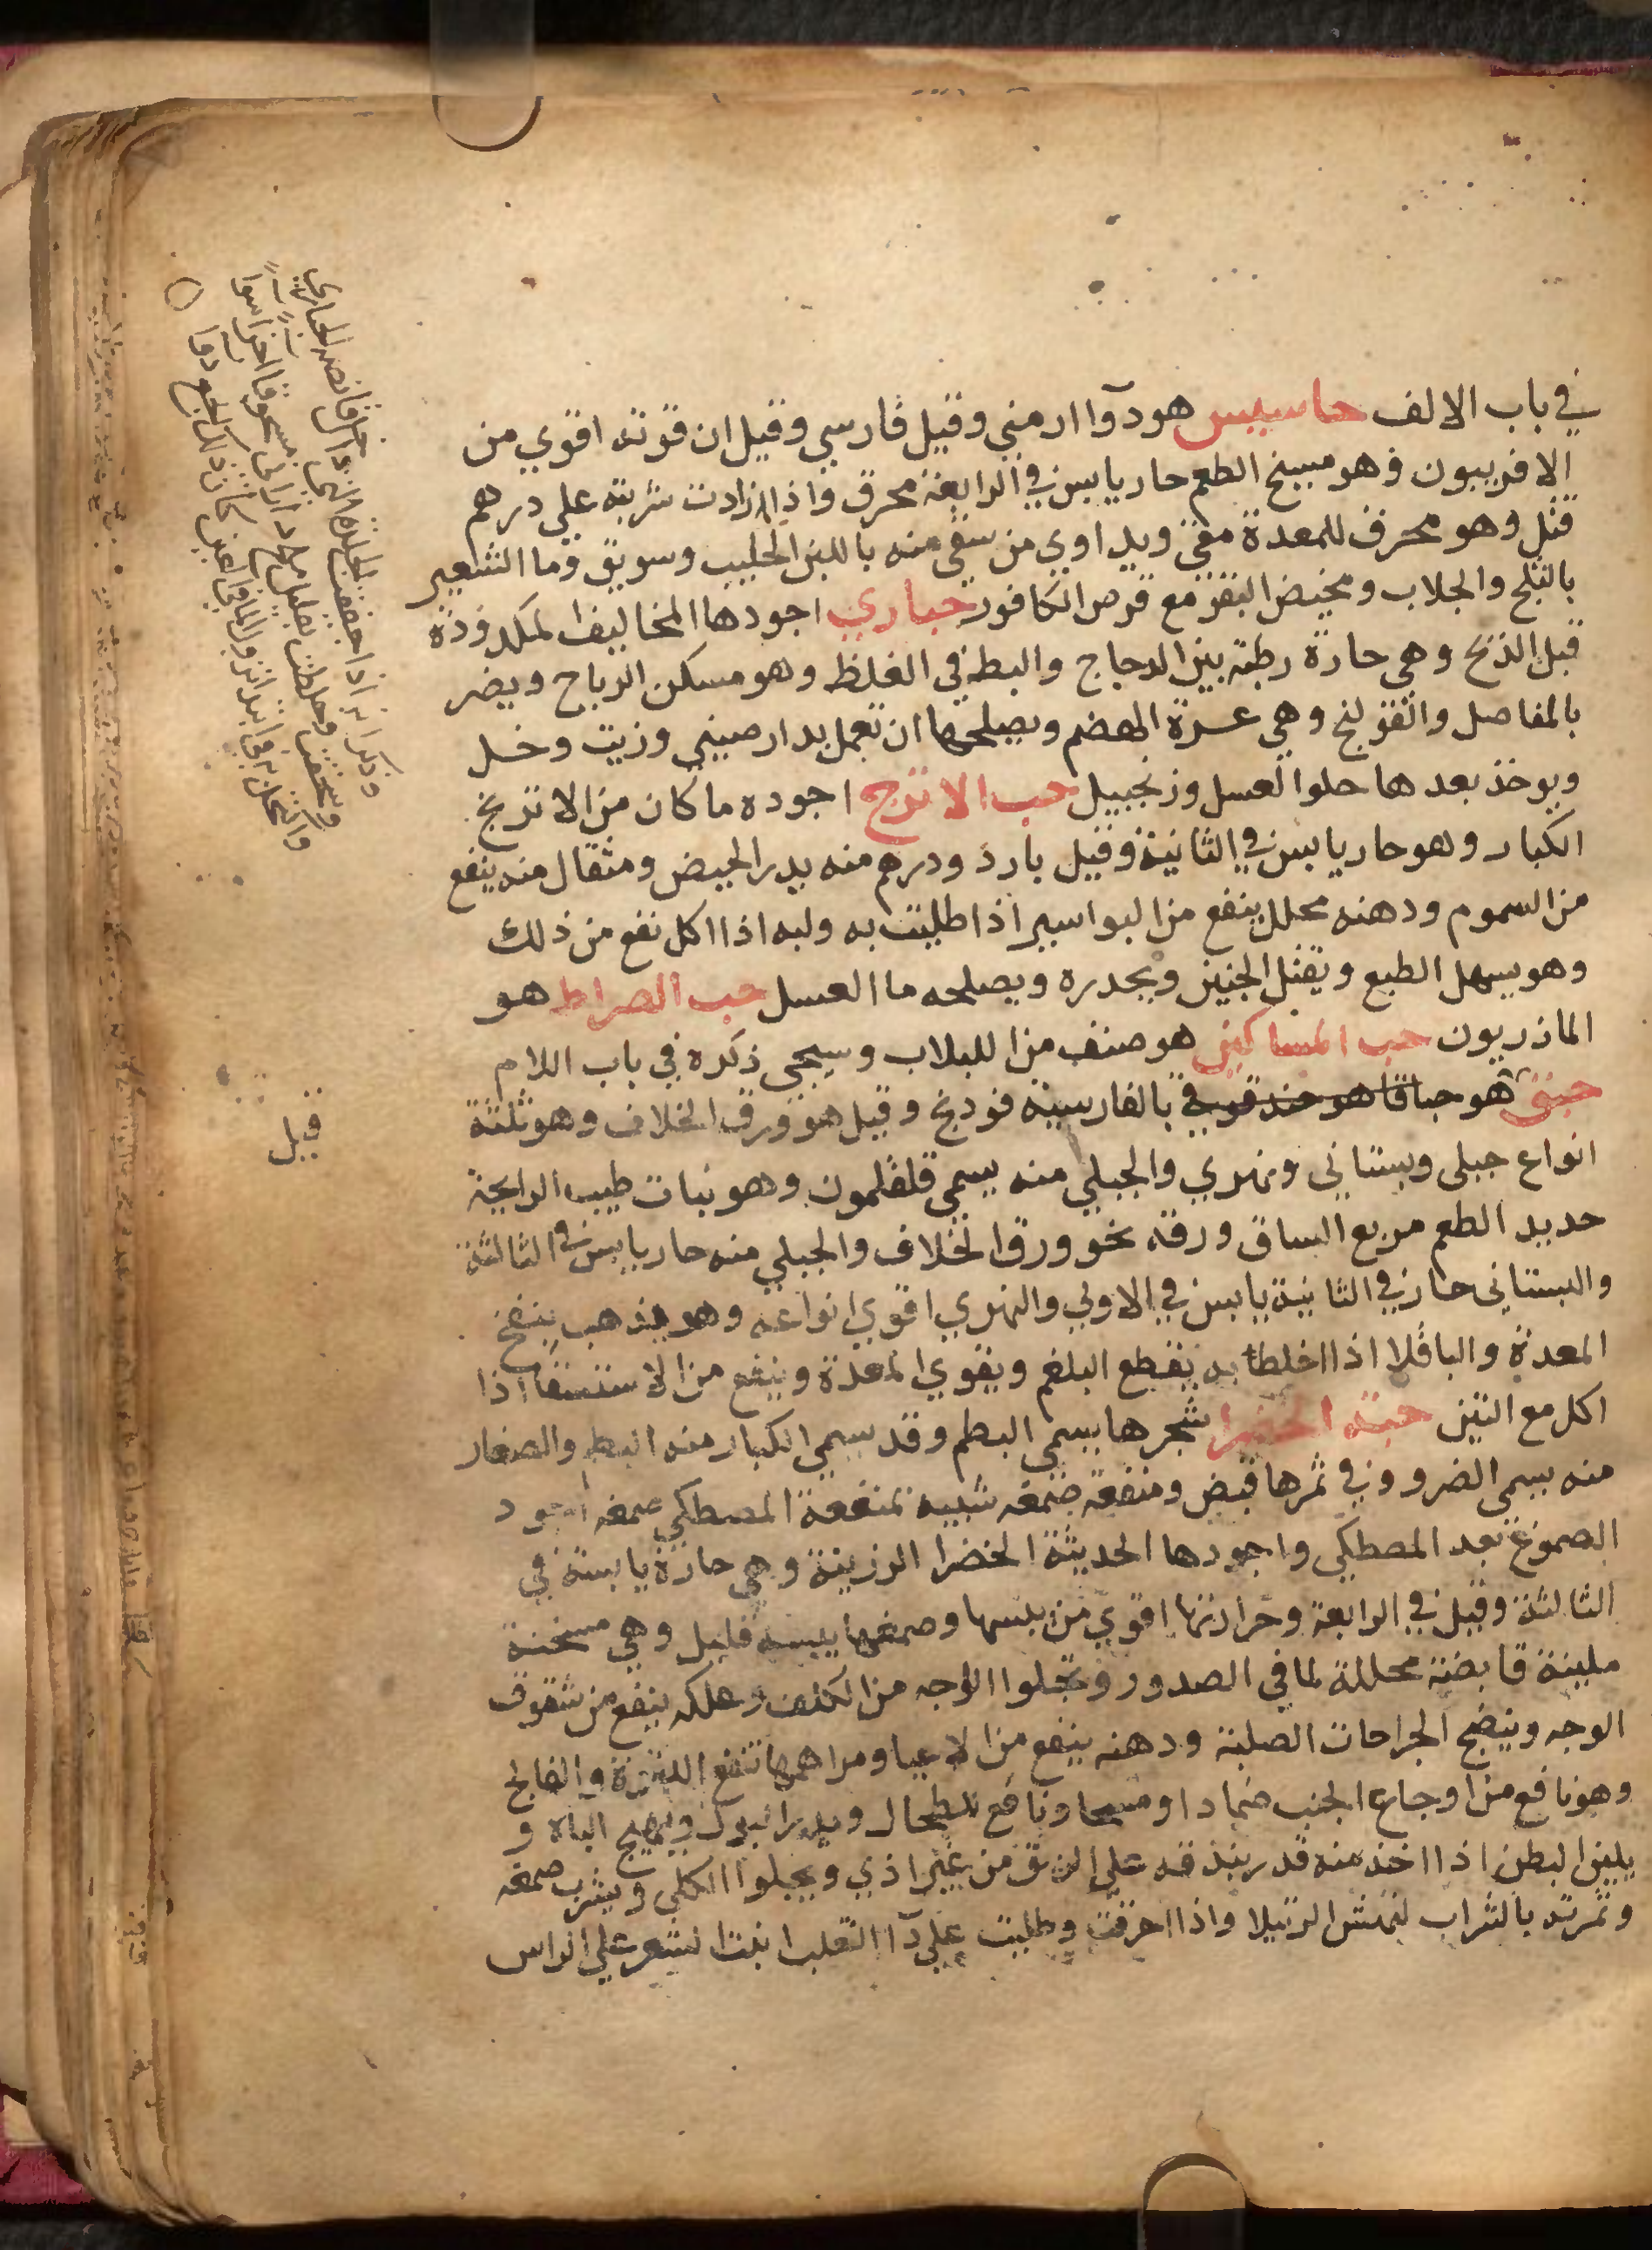 في باب الالف حاسيس هو دوآ ارمني وقيل فارسي وقيل ان قوته اقوي من
الافربيون وهو مسيخ الطعم حار يابس في الرابعة محرق واذا زادت شربته علي درهم
قتل وهو محرق للمعدة مقي ويداوي من سقي منه باللبن الحليب وسويق وما الشعير
بالثلج والجلاب ومخيض البقر مع قرص الكافور حباري اجودها المخاليف المكدودة
قبل الذبح وهي حارة رطبة بين الدجاج والبط في الغلظ وهو مسكن الرياح ويضر
بالمفاصل والقولنج وهي عسرة الهضم ويصلحها ان تعمل بدارصيني وزيت وخل
ويوخذ بعدها حلوا العسل وزنجبيل حب الاترج اجوده ما كان من الاترنج
الكبار وهو حار يابس في الثانية وقيل بارد ودرهم منه يدر الحيض ومثقال منه ينفع
من السموم ودهنه محلل ينفع من البواسير اذا طليت به ولبه اذا اكل نفع من ذلك
وهو يسهل الطبع ويقتل الجنين ويحدره ويصلحه ما العسل حب الضراط هو
الماذريون حب المساكين هو صنف من اللبلاب وسيجي ذكره في باب اللام
حبق هو حباقا هو حندقوقي بالفارسية فودنج وقيل هو ورق الخلاف وهو ثلثة
انواع جبلي وبستاني ونهري والجبلي منه يسمي قلقلمون وهو نبات طيب الرايحة
حديد الطعم مربع الساق ورقه نحو ورق الخلاف والجبلي منه حار يابس في الثالثة
والبستاني حار في الثانية يابس في الاولي والنهري اقوي انواعه وهو يذهب بنفخ
المعدة والباقلا اذا اخلطا به يقطع البلغم ويقوي المعدة وينفع من الاستسقا اذا
اكل مع التين حبة الخضرا شجرها يسمي البطم وقد سمي الكبار منه البطم والصغار
منه يسمي الضرو وفي ثمرها قبض ومنفعة صمغه شبيه بمنفعة المصطكي صمغه اجود
الصموغ بعد المصطكي واجودها الحديثة الخضرا الرزينة وهي حارة يابسة في
الثالثة وقيل في الرابعة وحرارتها اقوي من يبسها وصمغها يبسه قليل وهي مسخنة
ملينة قابضة محللة لما في الصدور وتجلوا الوجه من الكلف وعلكه ينفع من شقوق
الوجه وينضج الجراحات الصلبة ودهنه ينفع من الاعيا ومراهمها تنفع اللقوة والفالج
وهو نافع من اوجاع الجنب ضمادا ومسحا ونافع للطحال ويدر البول ويهيج الباه و
يلين البطن اذا اخذ منه قدر بندقة علي الريق من غير اذي ويجلوا الكلي ويشرب صمغه
وثمرته بالشراب لنهش الرتيلا واذا احرقت وطليت علي دآ الثعلب انبت الشعر علي الراس
وذكر انه اذا جففت الجلدة التي داخل قانصة الحباري
وسحقت وخلطت بقليل ملح دراني مسحوقا اجزا سوا
واكتحل به في ابتدا نزول الما في العين كان ذلك انجع دوا
قيل